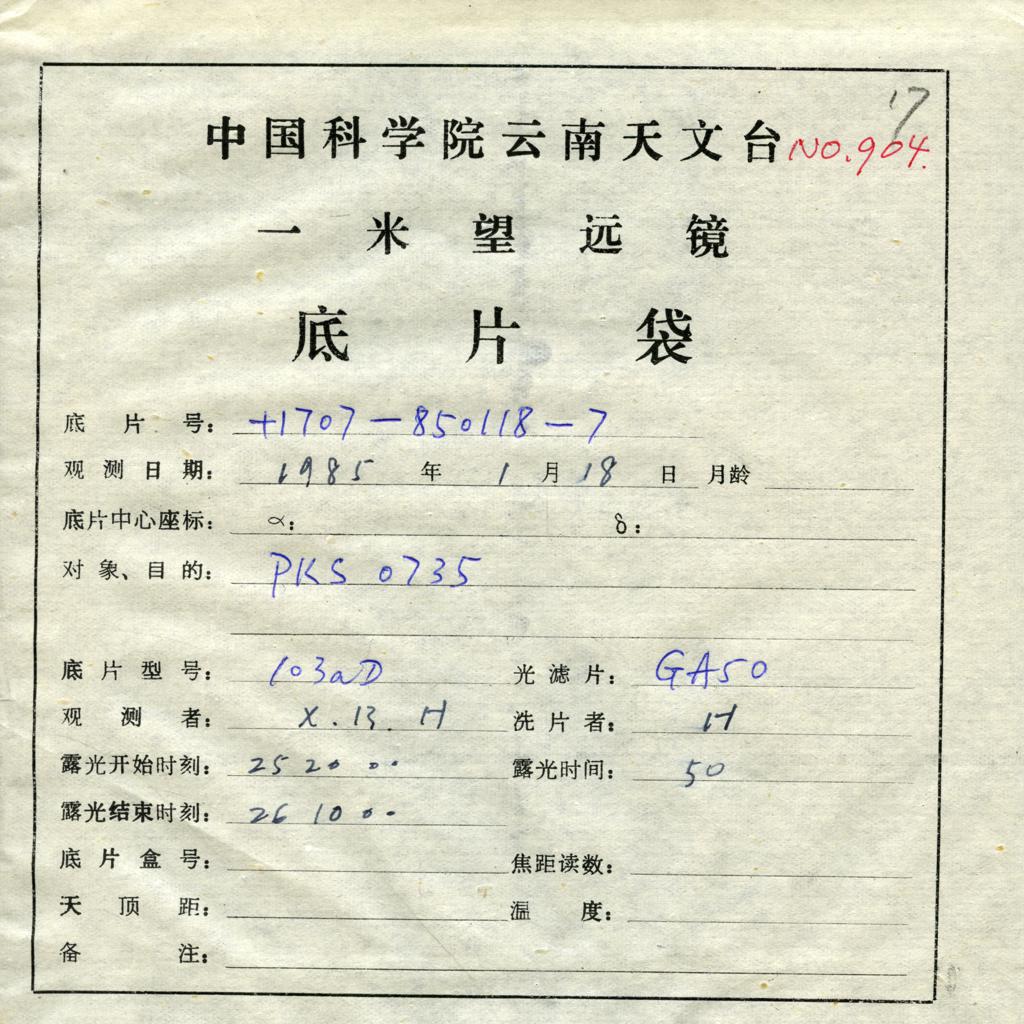 17
中国科学院云南天文台 NO.904.
一米望远镜
底片袋
底片号: +1707-850118-7
观测日期: 1985 年 1 月 18 日 月龄
底片中心座标: α: δ:
对象、目的: PKS 0735
底片型号: 103aD 光滤片: GA50
观测者: X. B. H 洗片者: H
露光开始时刻: 25 20 00 露光时间: 50
露光结束时刻: 26 10 00
底片盒号: 焦距读数:
天顶距: 温度:
备注: